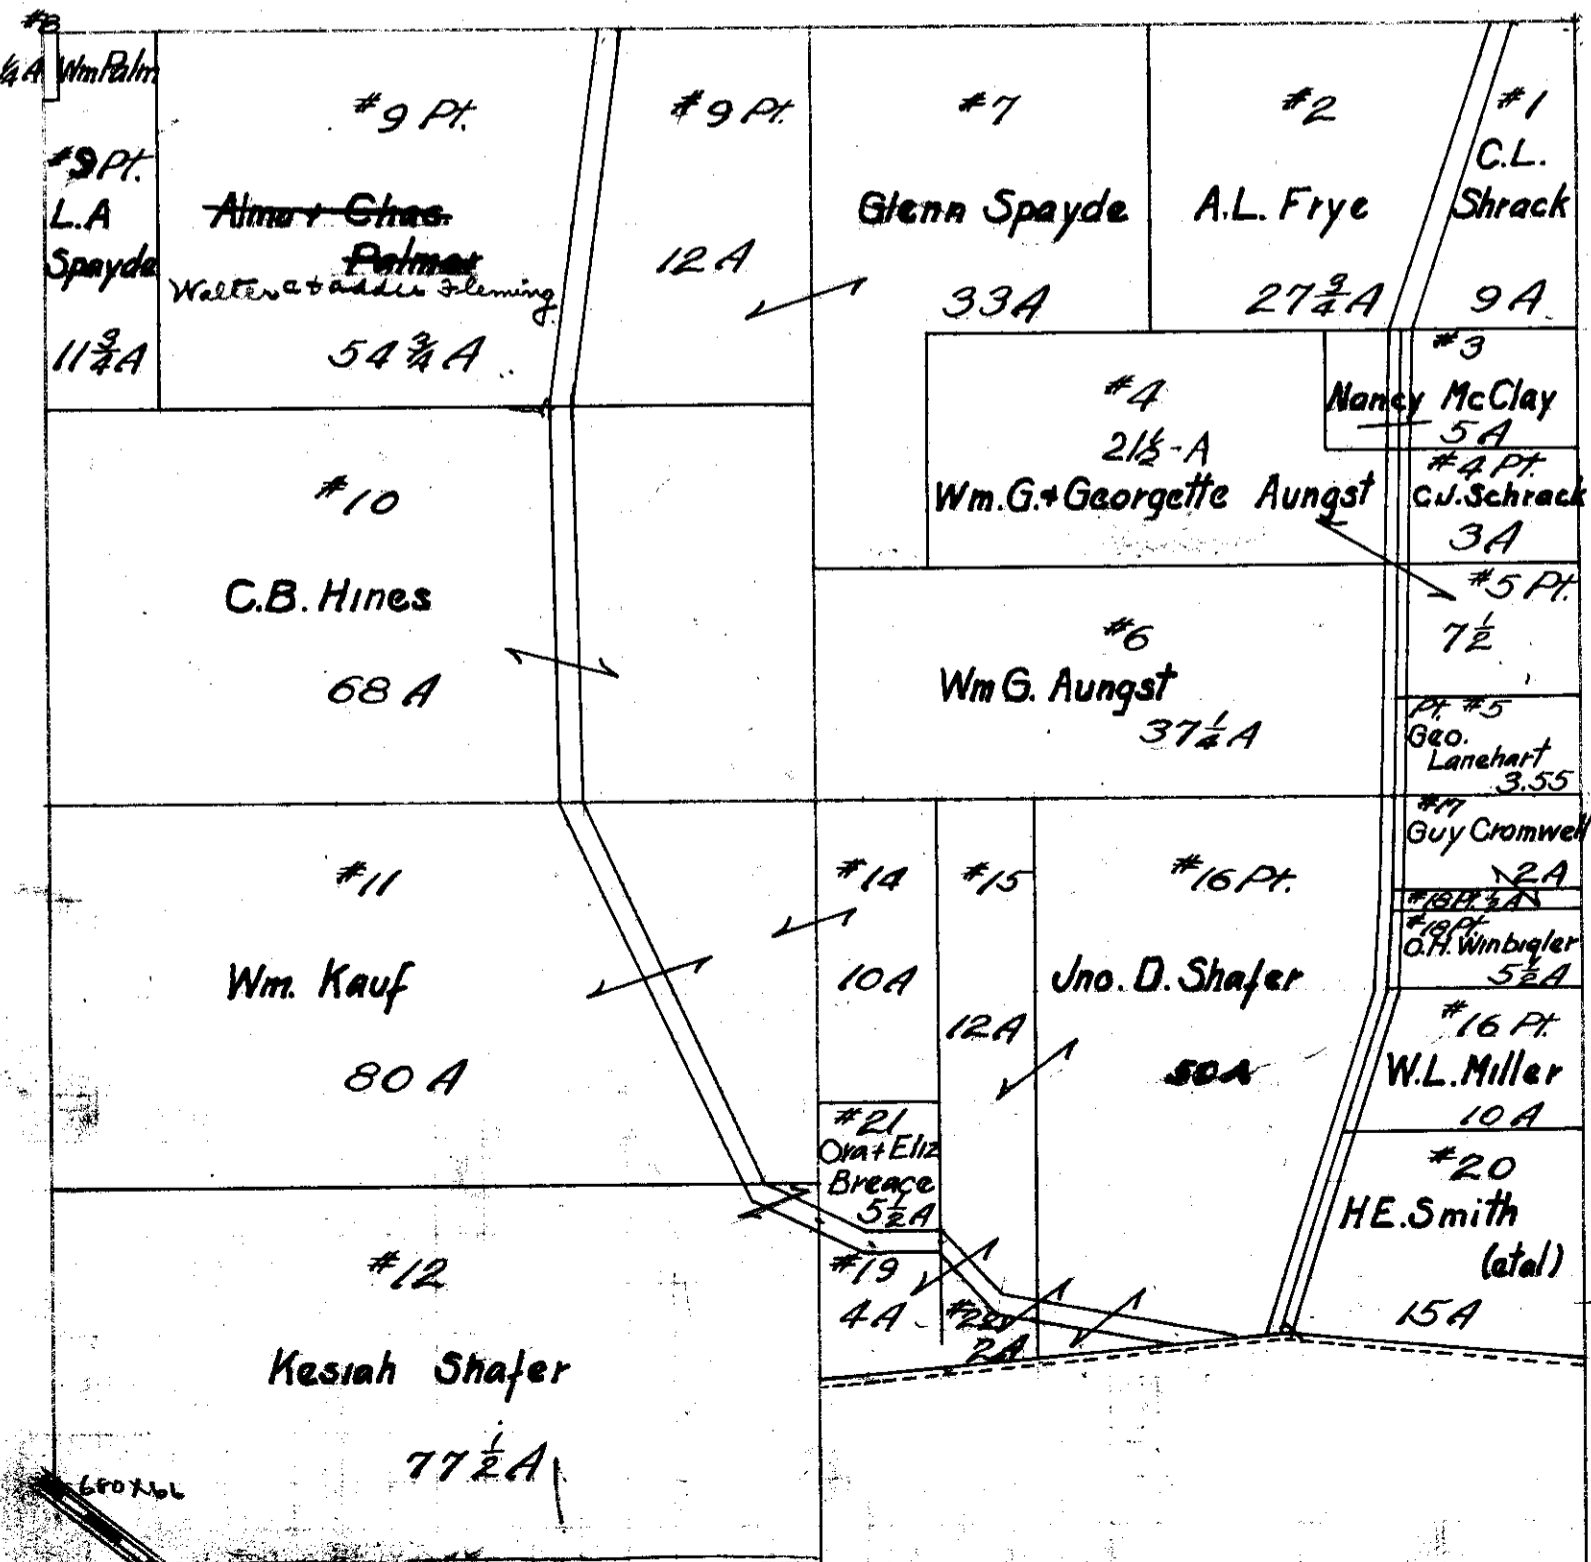 #8
¼A Wm Palm
#9 Pt.
L.A
Spayde
11¾A
#9 Pt.
Alma + Chas.
Palmer
Walter a + addie Fleming
54¾A
#9 Pt.
12A
#7
Glenn Spayde
33A
#2
A.L. Frye
27¾A
#1
C.L.
Shrack
9A
#3
Nancy McClay
5A
#4
21½-A
Wm.G.+Georgette Aungst
#4 Pt.
C.J.Schrack
3A
#5 Pt.
7½
#10
C.B. Hines
68A
#6
Wm G. Aungst
37¼A
Pt. #5
Geo.
Lanehart
3.55
#17
Guy Cromwell
2A
#18 Pt. ½A
#18 Pt.
O.H. Winbigler
5½A
#11
Wm. Kauf
80A
#14
10A
#15
12A
#16 Pt.
Jno. D. Shafer
50A
#16 Pt.
W.L. Miller
10A
#21
Ora + Eliz
Breace
5½A
#20
H E. Smith
(etal)
15A
#12
Kesiah Shafer
77½A
#19
4A
2A
680X66